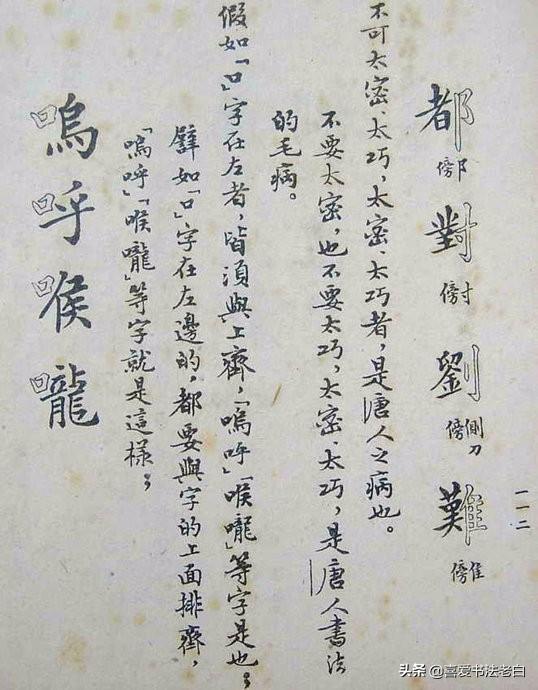 都對劉難
阝傍
寸傍
側刀傍
隹傍
一一二
不可太密、太巧,太密、太巧者,是唐人之病也。
不要太密,也不要太巧,太密、太巧,是唐人書法
的毛病。
假如「口」字在左者,皆須與上齊,「嗚呼」「喉嚨」等字是也;
譬如「口」字在左邊的,都要與字的上面排齊,
「嗚呼」「喉嚨」等字就是這樣;
嗚呼喉嚨
头条 @喜爱书法老白